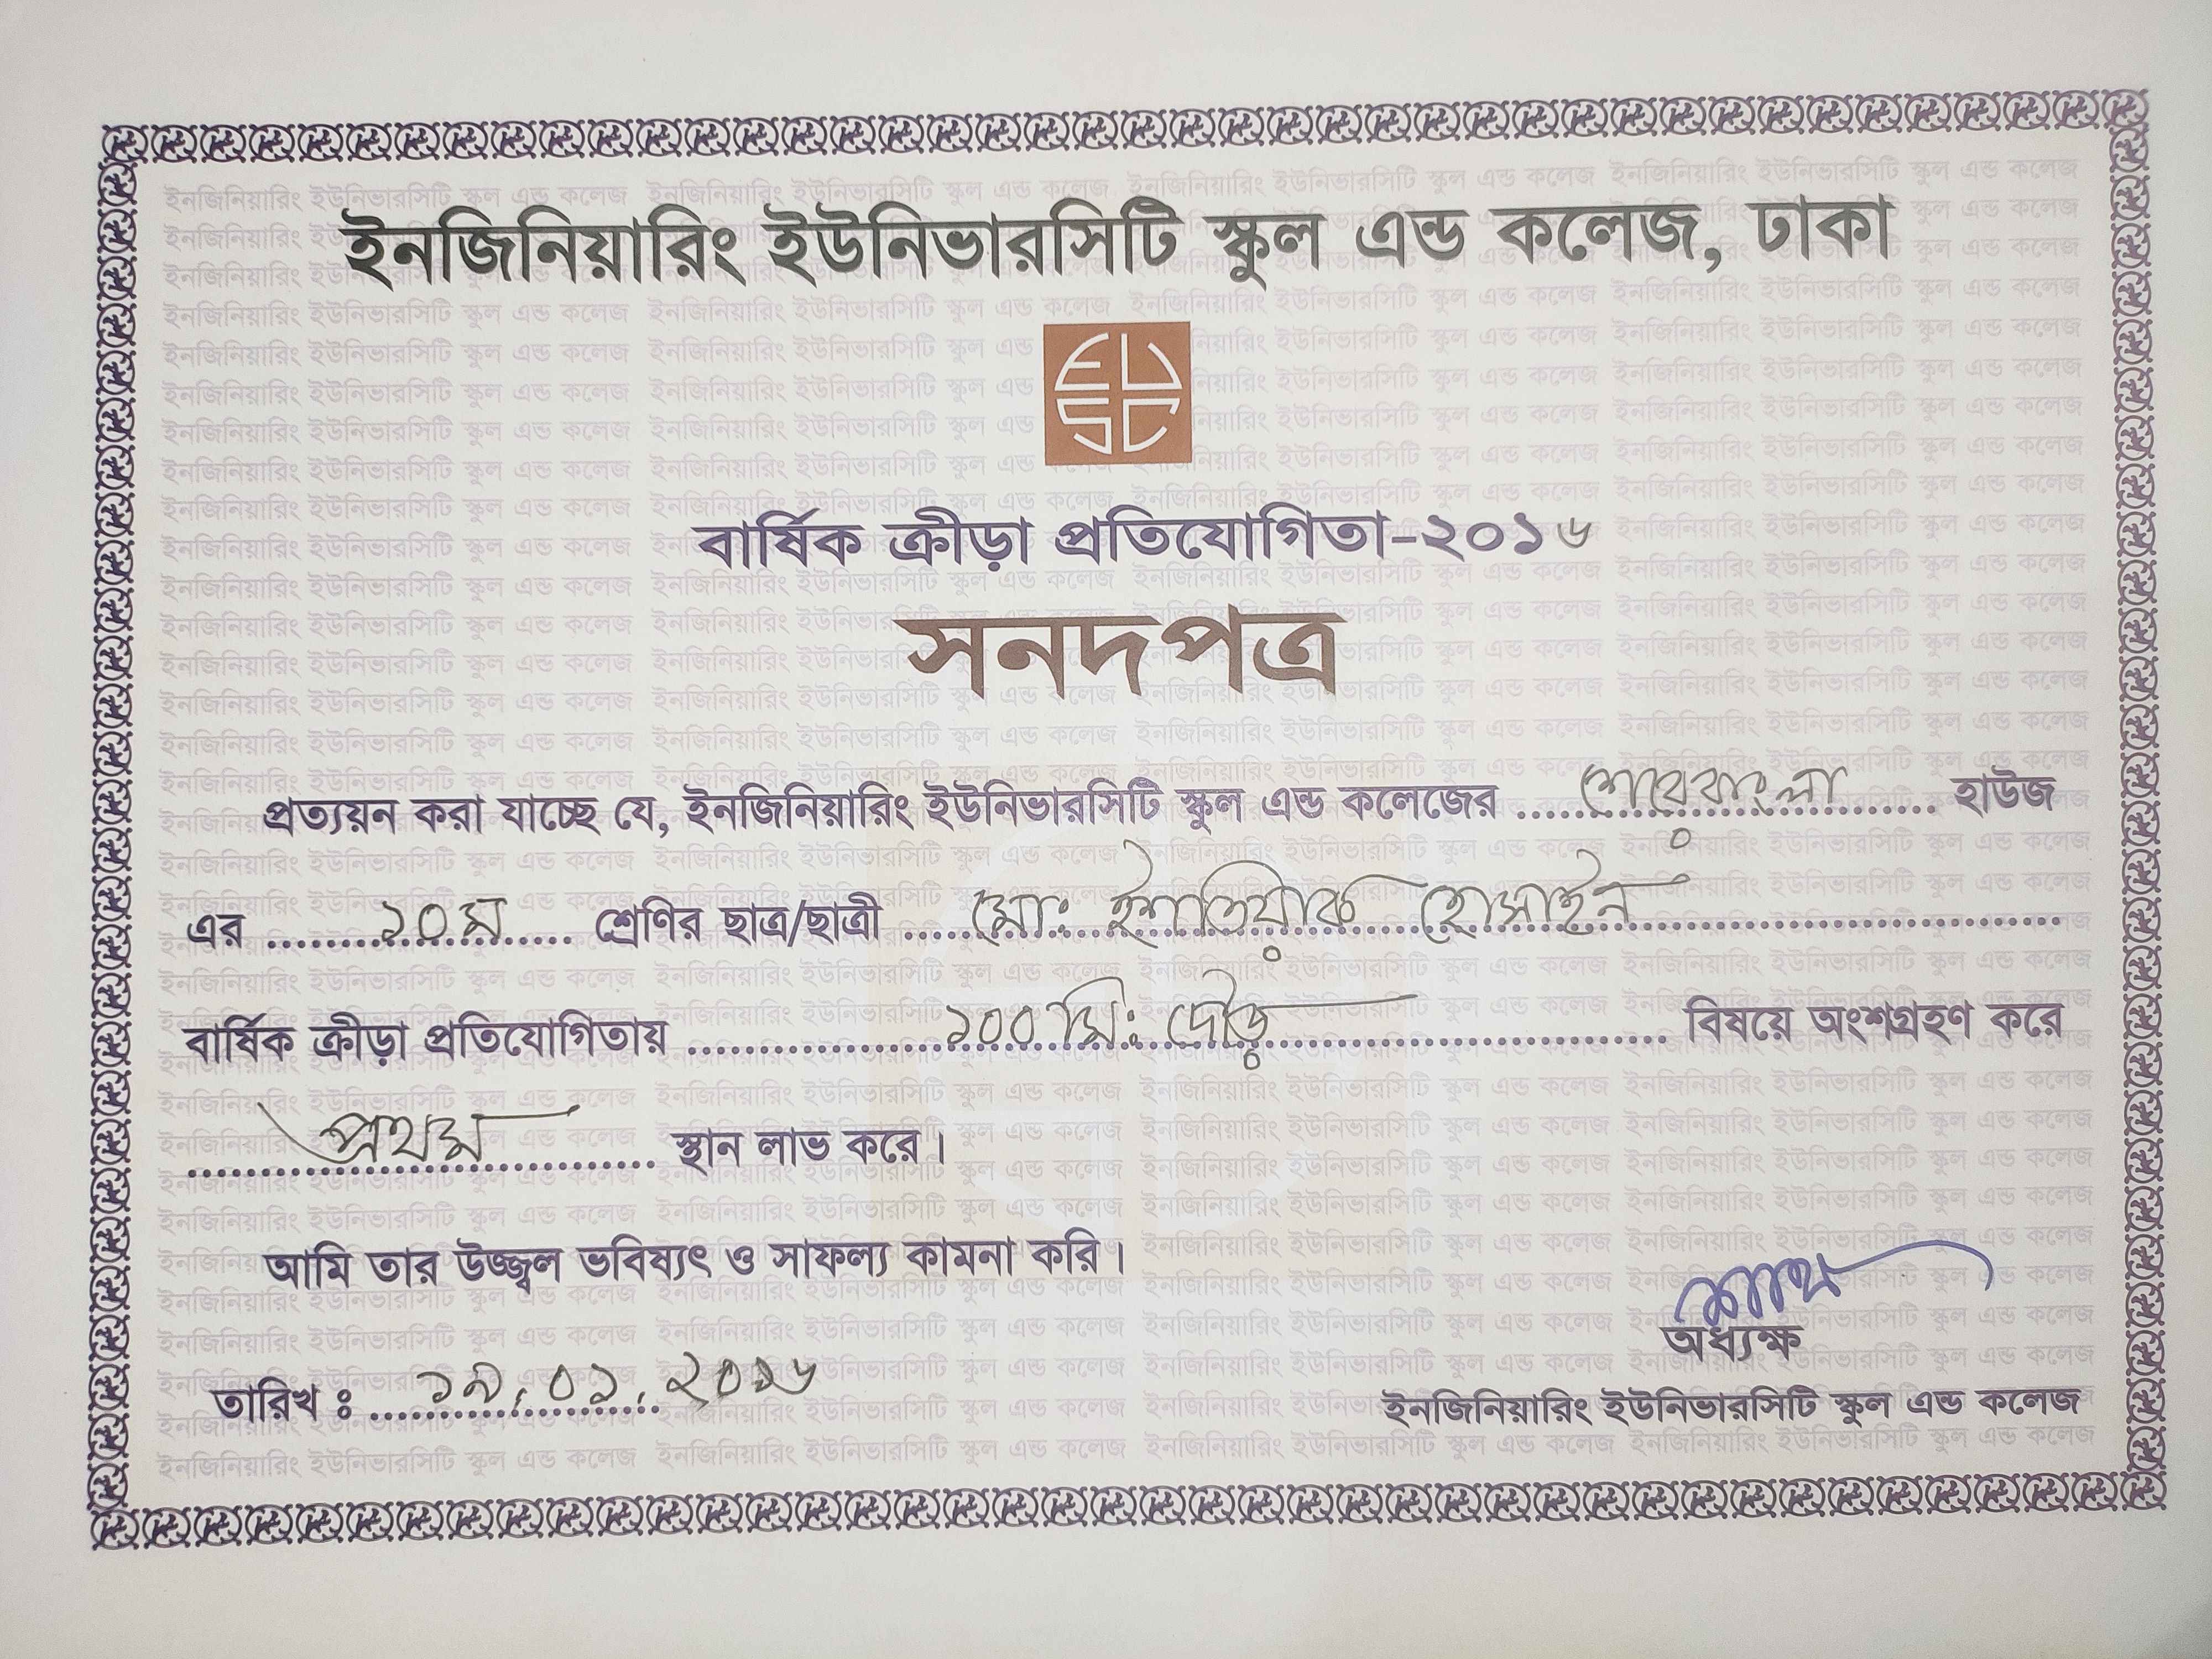 ইনজিনিয়ারিং ইউনিভারসিটি স্কুল এন্ড কলেজ, ঢাকা
EU
SC
বার্ষিক ক্রীড়া প্রতিযোগিতা-২০১৬
সনদপত্র
প্রত্যয়ন করা যাচ্ছে যে, ইনজিনিয়ারিং ইউনিভারসিটি স্কুল এন্ড কলেজের শেরেবাংলা হাউজ
এর ১০ম শ্রেণির ছাত্র/ছাত্রী মোঃ ইশতিয়াক হোসাইন
বার্ষিক ক্রীড়া প্রতিযোগিতায় ১০০ মিঃ দৌড় বিষয়ে অংশগ্রহণ করে
প্রথম স্থান লাভ করে।
আমি তার উজ্জ্বল ভবিষ্যৎ ও সাফল্য কামনা করি।
অধ্যক্ষ
তারিখ ঃ ১৯.০১.২০১৬ ইনজিনিয়ারিং ইউনিভারসিটি স্কুল এন্ড কলেজ